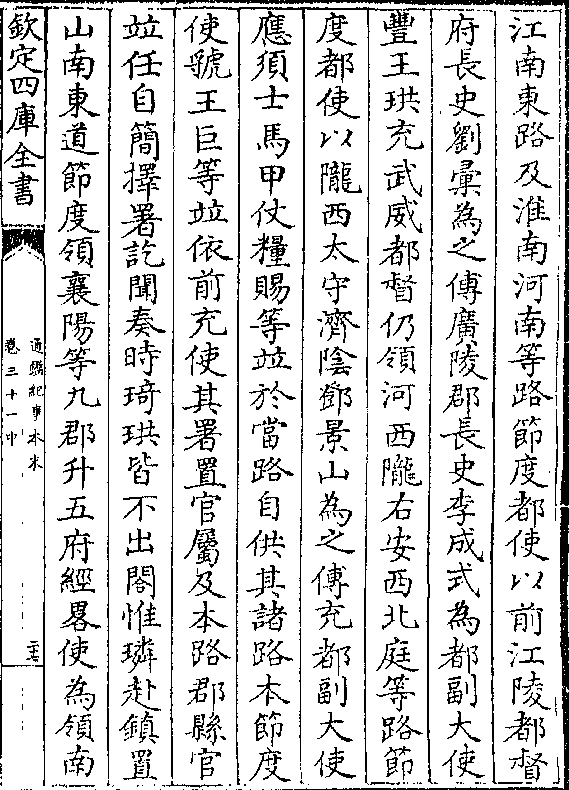 江南東路及淮南河南等路節度都使以前江陵都督
府長史劉彙為之傅廣陵郡長史李成式為都副大使
豐王珙充武威都督仍領河西隴右安西北庭等路節
度都使以隴西太守濟陰鄧景山為之傅充都副大使
應須士馬甲仗糧賜等竝於當路自供其諸路本節度
使虢王巨等竝依前充使其署置官屬及本路郡縣官
竝任自簡擇署訖聞奏時琦珙皆不出閤惟璘赴鎮置
山南東道節度領襄陽等九郡升五府經畧使為領南
欽定四庫全書
通鑑紀事本末
卷三十一中
二十七